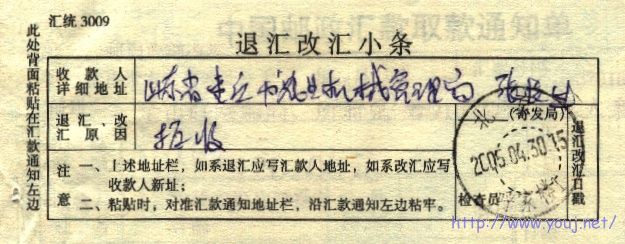 汇统 3009
退汇改汇小条
收款人
详细地址
山东省章丘
农业机械管理局
退汇、改
汇原因
拒收
(寄发局)
北
2006.04.30 15
退汇改汇日戳
注意
一、上述地址栏，如系退汇应写汇款人地址，如系改汇应写
收款人新址；
二、粘贴时，对准汇款通知地址栏，沿汇款通知左边粘牢。
检查员
此处背面粘贴在汇款通知左边
中国邮政汇款取款通知单
http://www.youj.net/